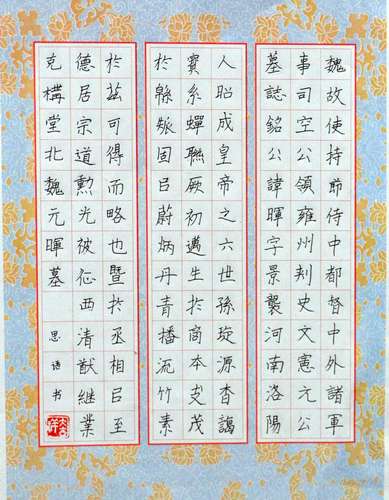 魏故使持節侍中都督中外諸軍
事司空公領雍州刾史文憲元公
墓誌銘公諱暉字景襲河南洛陽
人昭成皇帝之六世孫琁源杳藹
寶系蟬聯厥初邁生於商本支茂
於緜瓞固㠯蔚炳丹青播流竹素
於茲可得而略也暨於丞相㠯至
德居宗道勲光被征西清猷継業
克構堂北魏元暉墓 思语书